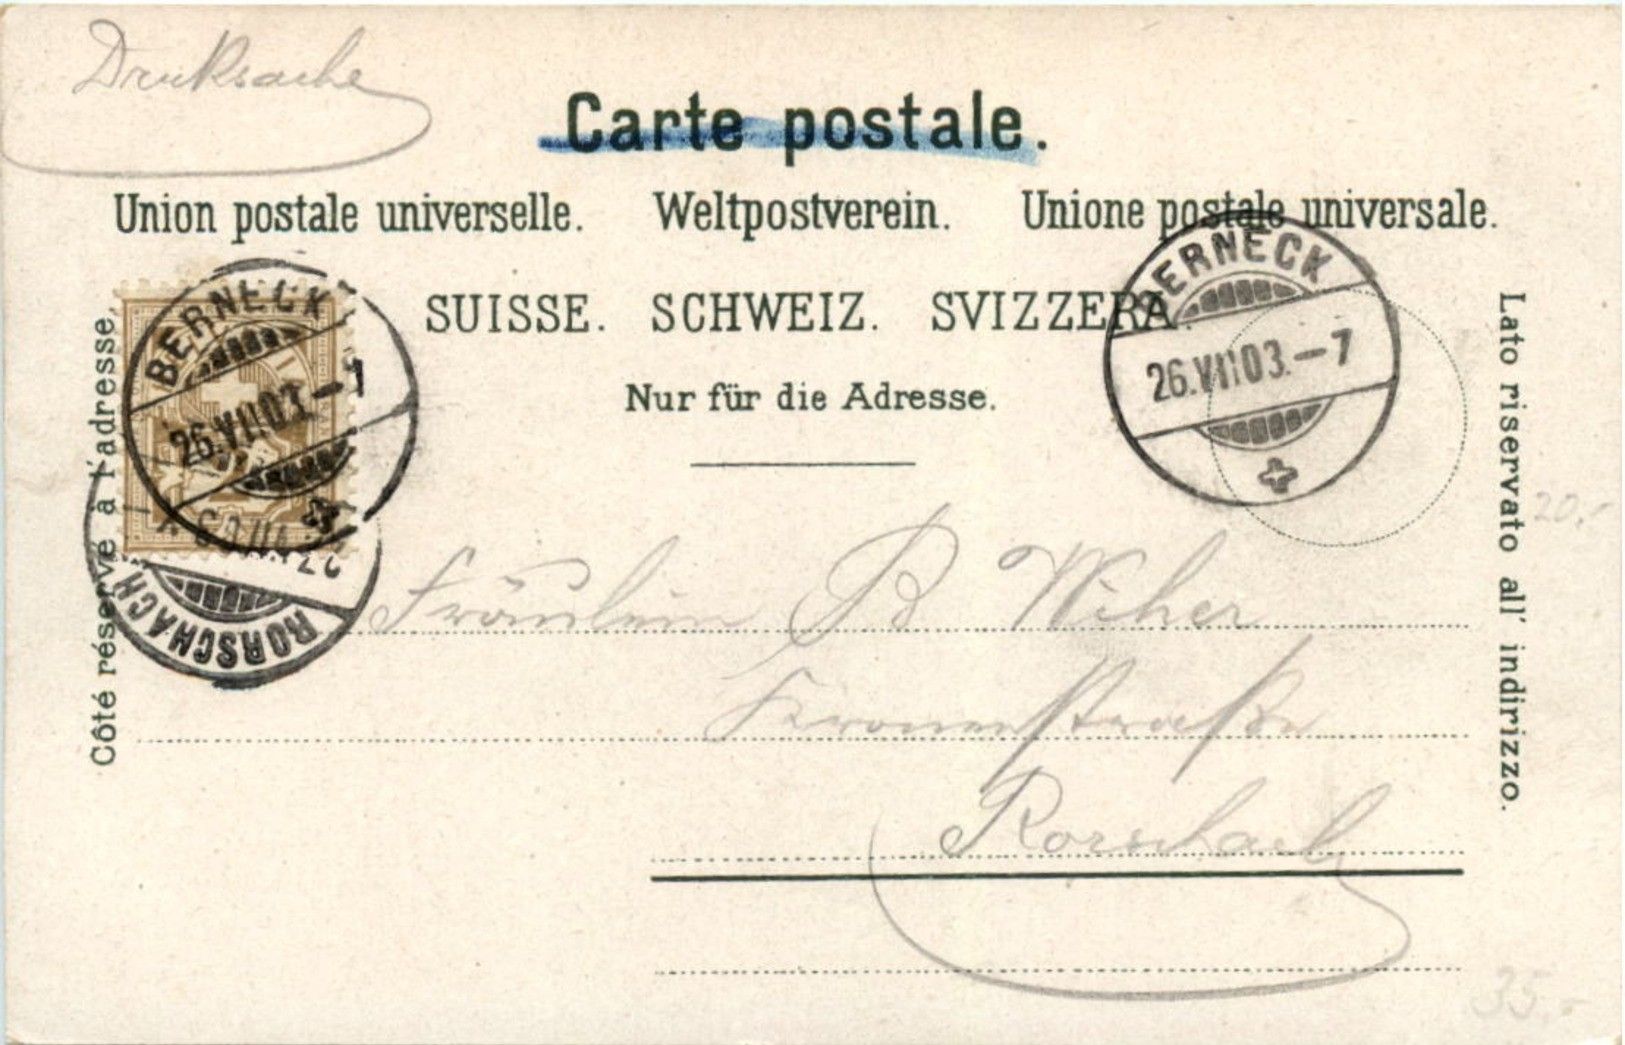 Drucksache
Carte postale.
Union postale universelle. Weltpostverein. Unione postale universale.
SUISSE. SCHWEIZ. SVIZZERA.
Nur für die Adresse.
Côté réservé à l'adresse.
Lato riservato all' indirizzo.
BERNECK
26.VII.03.-7
BERNECK
26.VII.03.-7
RORSCHACH
Fräulein B Wiher
Kronenstraße
Rorschach
20.-
35.-